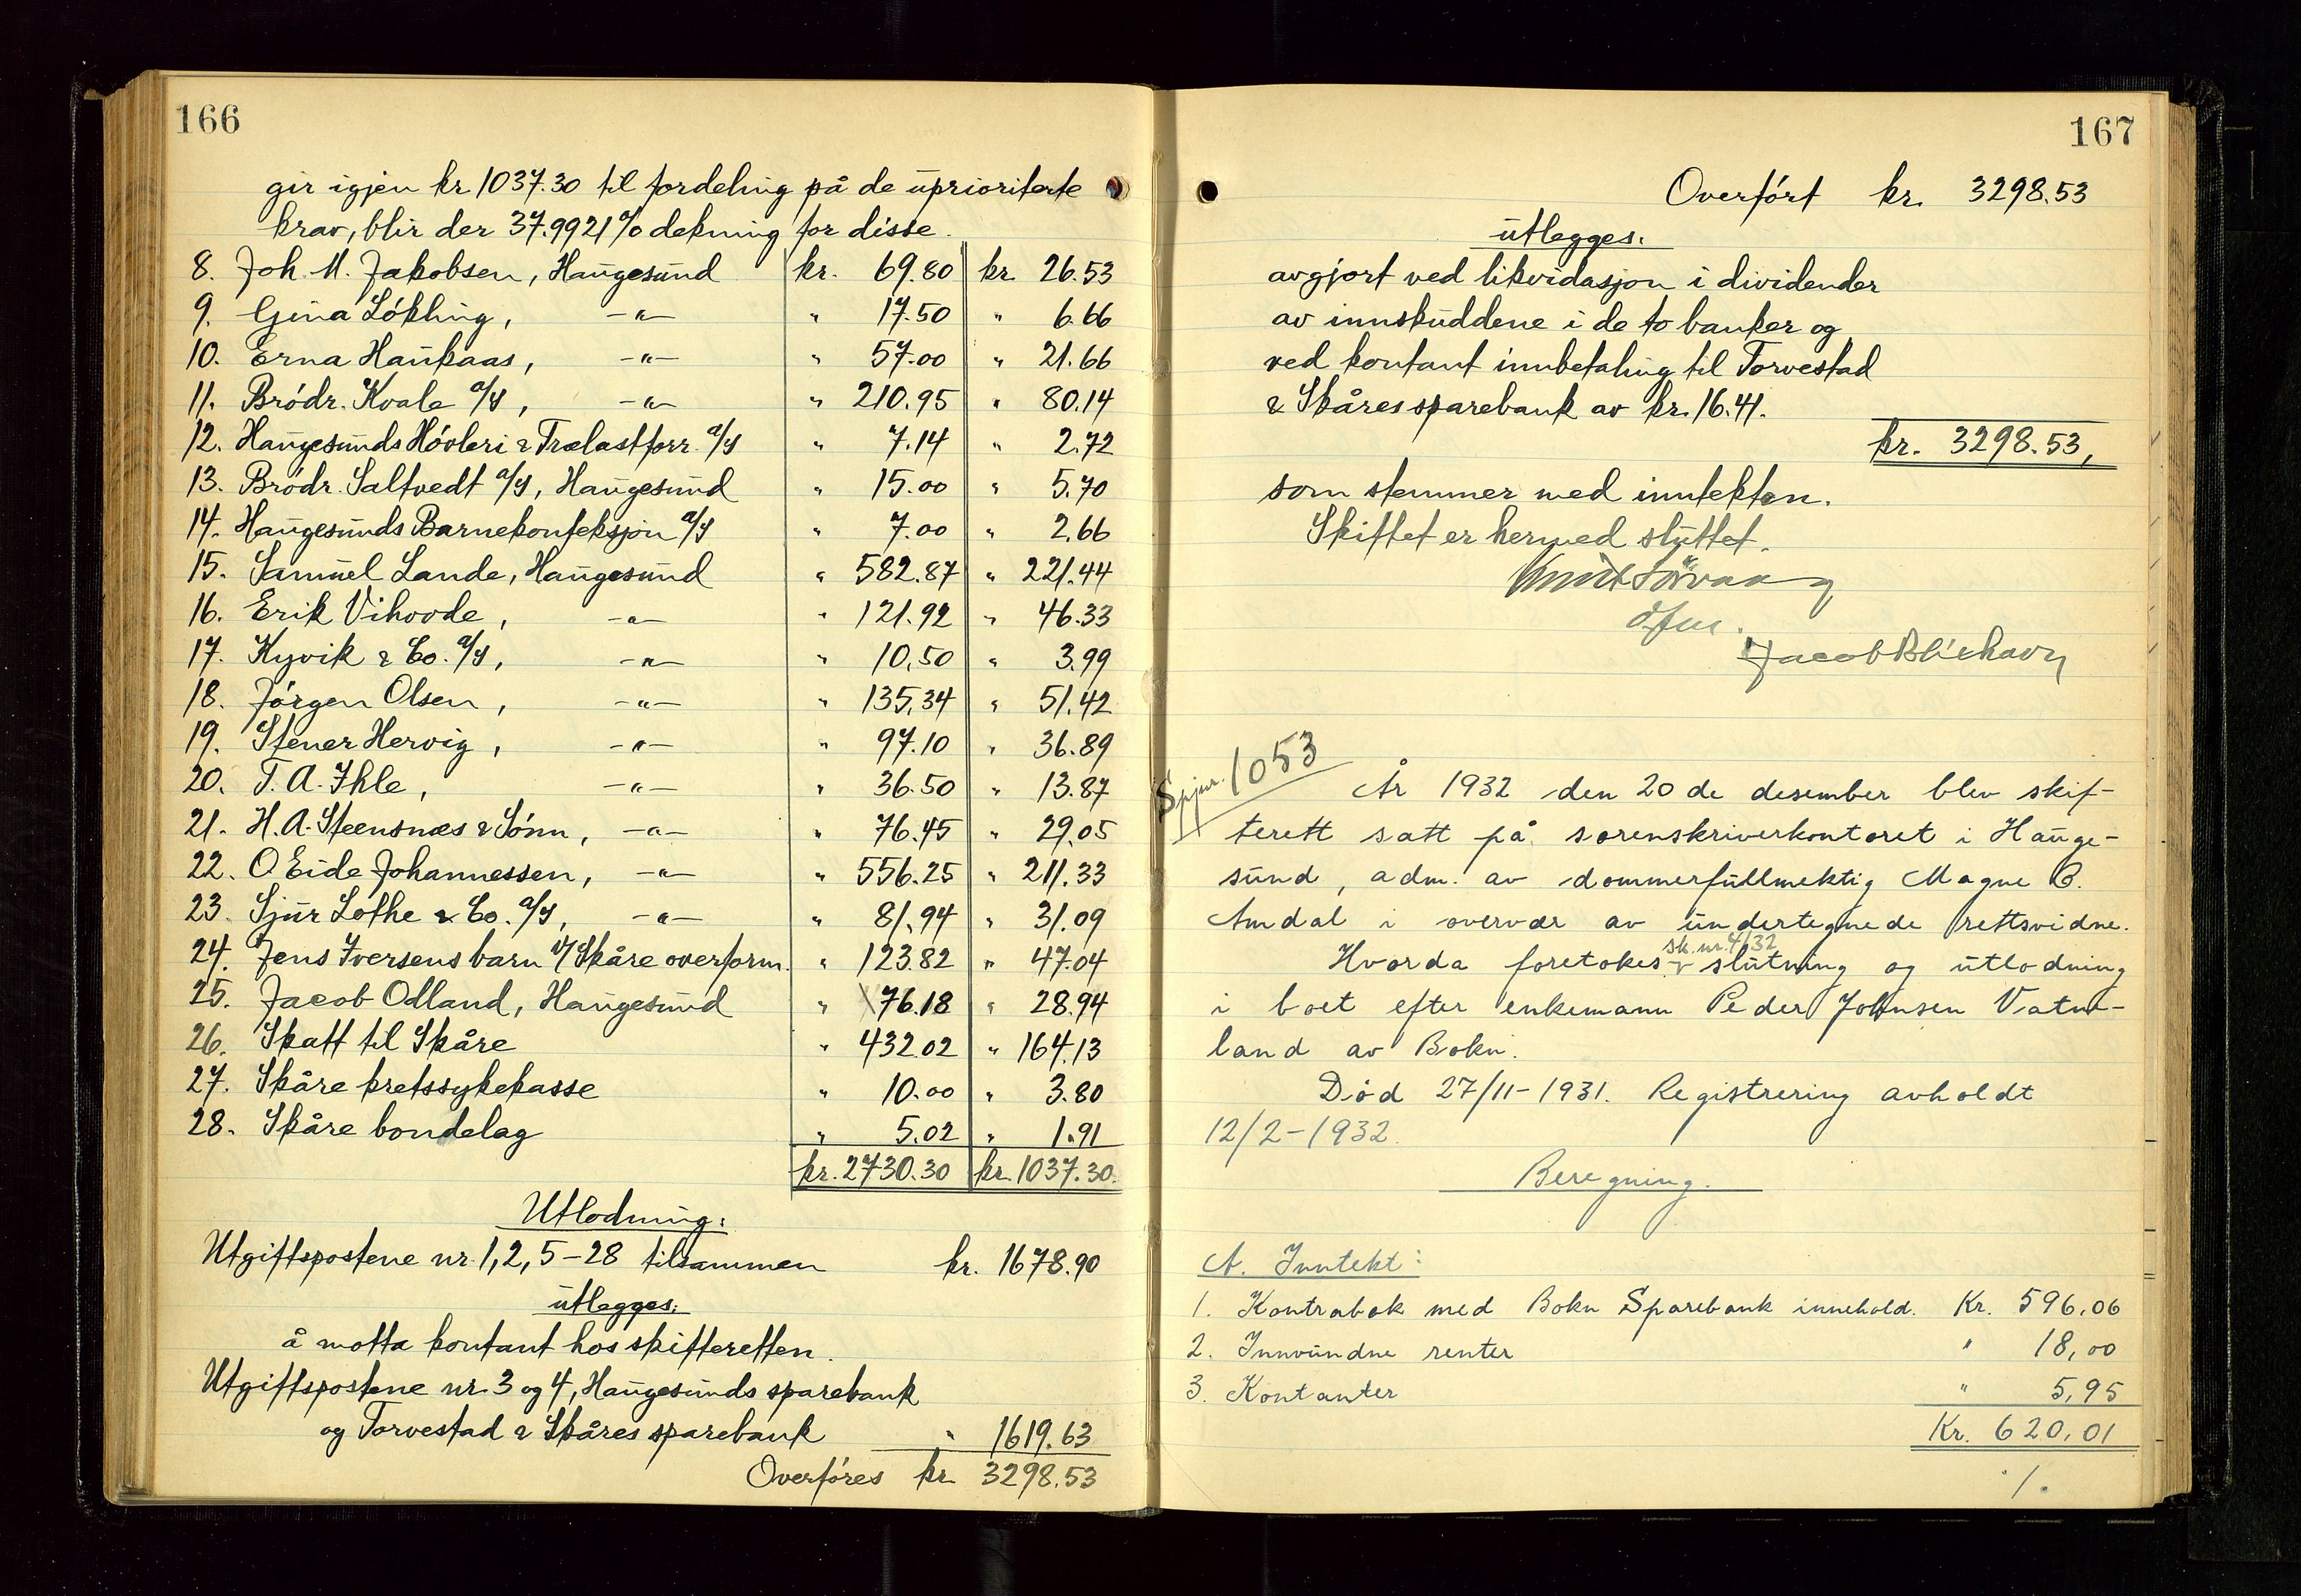 166
gir igjen kr. 1037.30 til fordeling på de uprioriterte
krav, blir der 37.9921% dekning for disse.
8. Joh. M. Jakobsen, Haugesund kr. 69.80 kr. 26.53
9. Gina Lökling, -"- " 17.50 " 6.66
10. Erna Haukaas, -"- " 57.00 " 21.66
11. Brödr. Kvale a/s, -"- " 210.95 " 80.14
12. Haugesunds Hövleri & Trælastforr. a/s " 7.14 " 2.72
13. Brödr. Saltvedt a/s, Haugesund " 15.00 " 5.70
14. Haugesunds Barnekonfeksjon a/s " 7.00 " 2.66
15. Samuel Lande, Haugesund " 582.87 " 221.44
16. Erik Vihovde, -"- " 121.92 " 46.33
17. Kyvik & Co. a/s, -"- " 10.50 " 3.99
18. Jörgen Olsen, -"- " 135.34 " 51.42
19. Stener Hervig, -"- " 97.10 " 36.89
20. T. A. Ihle, -"- " 36.50 " 13.87
21. H. A. Steensnæs & Sönn, -"- " 76.45 " 29.05
22. O Eide Johannessen, -"- " 556.25 " 211.33
23. Sjur Lothe & Co. a/s, -"- " 81.94 " 31.09
24. Jens Iversens barn v/ Skåre overform. " 123.82 " 47.04
25. Jacob Odland, Haugesund " 76.18 " 28.94
26. Skatt til Skåre " 432.02 " 164.13
27. Skåre kretssykekasse " 10.00 " 3.80
28. Skåre bondelag " 5.02 " 1.91
kr. 2730.30 kr. 1037.30.
Utlodning:
Utgiftspostene nr. 1, 2, 5-28 tilsammen kr. 1678.90
utlegges:
å motta kontant hos skifteretten.
Utgiftspostene nr. 3 og 4, Haugesunds sparebank
og Torvestad & Skåres sparebank " 1619.63
Overföres kr. 3298.53
167
Overfört kr. 3298.53
utlegges:
avgjort ved likvidasjon i dividender
av innskuddene i de to banker og
ved kontant innbetaling til Torvestad
& Skåres sparebank av kr. 16.41.
kr. 3298.53,
som stemmer med inntekten.
Skiftet er hermed sluttet.
Jacob
1053
År 1932 den 20 de desember blev skif-
terett satt på sorenskriverkontoret i Hauge-
sund, adm. av dommerfullmektig Magne B.
Amdal i overvær av undertegnede rettsvidne.
sk. nr. 4/32
Hvorda foretokes slutning og utlodning
i boet efter enkemann Peder Johnsen Vatne-
land av Bokn.
Død 27/11-1931. Registrering avholdt
12/2-1932.
Beregning.
A. Inntekt:
1. Kontrabok med Bokn Sparebank innehold. Kr. 596,06
2. Innvundne renter " 18,00
3. Kontanter " 5,95
Kr. 620,01
./.